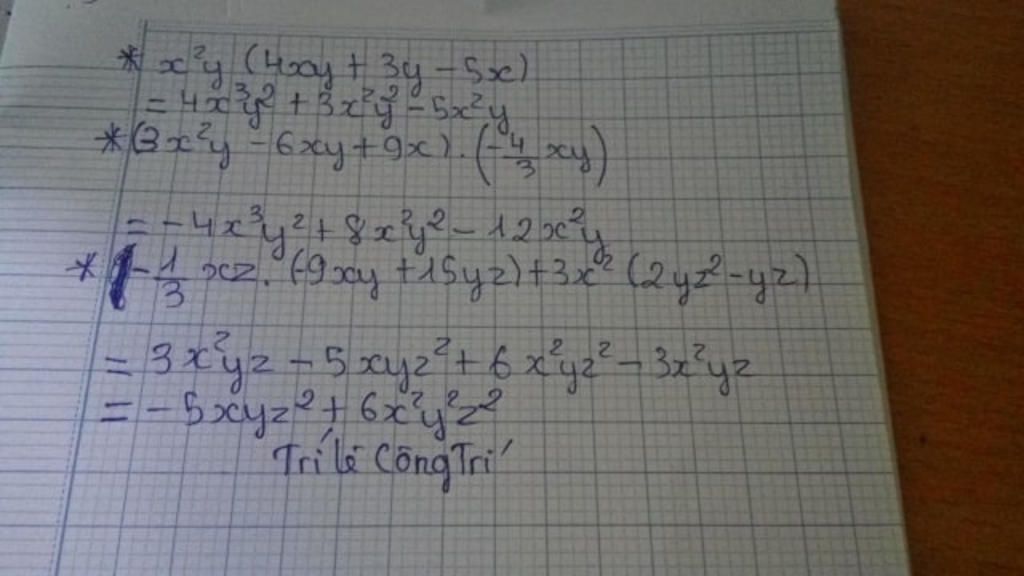 * x²y (4xy + 3y - 5x)
= 4x³y² + 3x²y² - 5x²y
* (3x²y - 6xy + 9x) . (-4/3 xy)
= -4x³y² + 8x²y² - 12x²y
* -1/3 xz. (-9xy + 15yz) + 3x² (2yz² - yz)
= 3x²yz - 5xyz² + 6x²yz² - 3x²yz
= -5xyz² + 6x²y²z²
Trí lê Công Trí